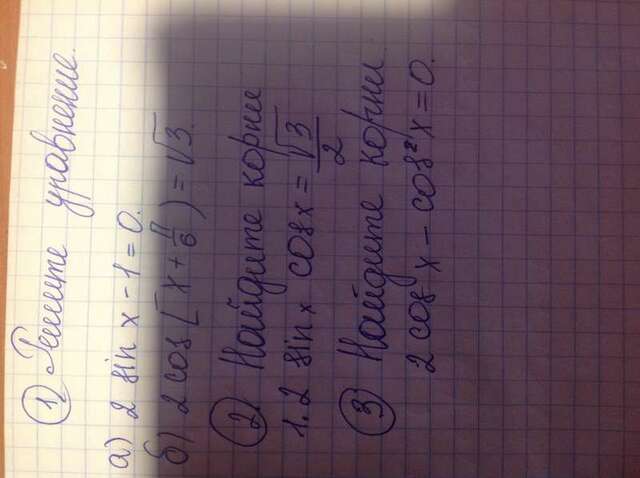 ① Решите уравнение.
а) 2 sin x - 1 = 0.
б) 2 cos [x + π/6) = √3.
② Найдите корни
1. 2 sin x cos x = √3/2
③ Найдите корни
2 cos x - cos² x = 0.